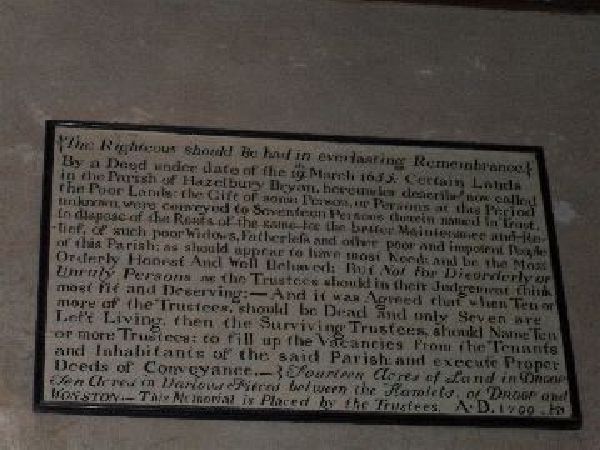 {The Righteous should be had in everlasting Remembrance}
By a Deed under date of the March 1655. Certain Lands
in the Parish of Hazelbury Bryan, hereunder now called
the Poor Lands: the Gift of some Person, or Persons at this Period
unknown, were conveyed to Seventeen Persons therein named in Trust,
to dispose of the Rents of the same for the better Maintenance and Re-
-lief, of such poor Widows, Fatherless and other poor and impotent People
of this Parish; as should appear to have most Need; and be the Most
Orderly Honest And Well Behaved: But Not For Disorderly or
Unruly Persons as the Trustees should in their Judgement think
most fit and Deserving:— And it was Agreed that when Ten or
more of the Trustees, should be Dead and only Seven are
Left Living, then the Surviving Trustees, should Name Ten
or more Trustees: to fill up the Vacancies from the Tenants
and Inhabitants of the said Parish: and execute Proper
Deeds of Conveyance.— {Fourteen Acres of Land in DROOP
Ten Acres in Various Pieces between the Hamlets, of DROOP and
WONSTON— This Memorial is Placed by the Trustees. A.D.